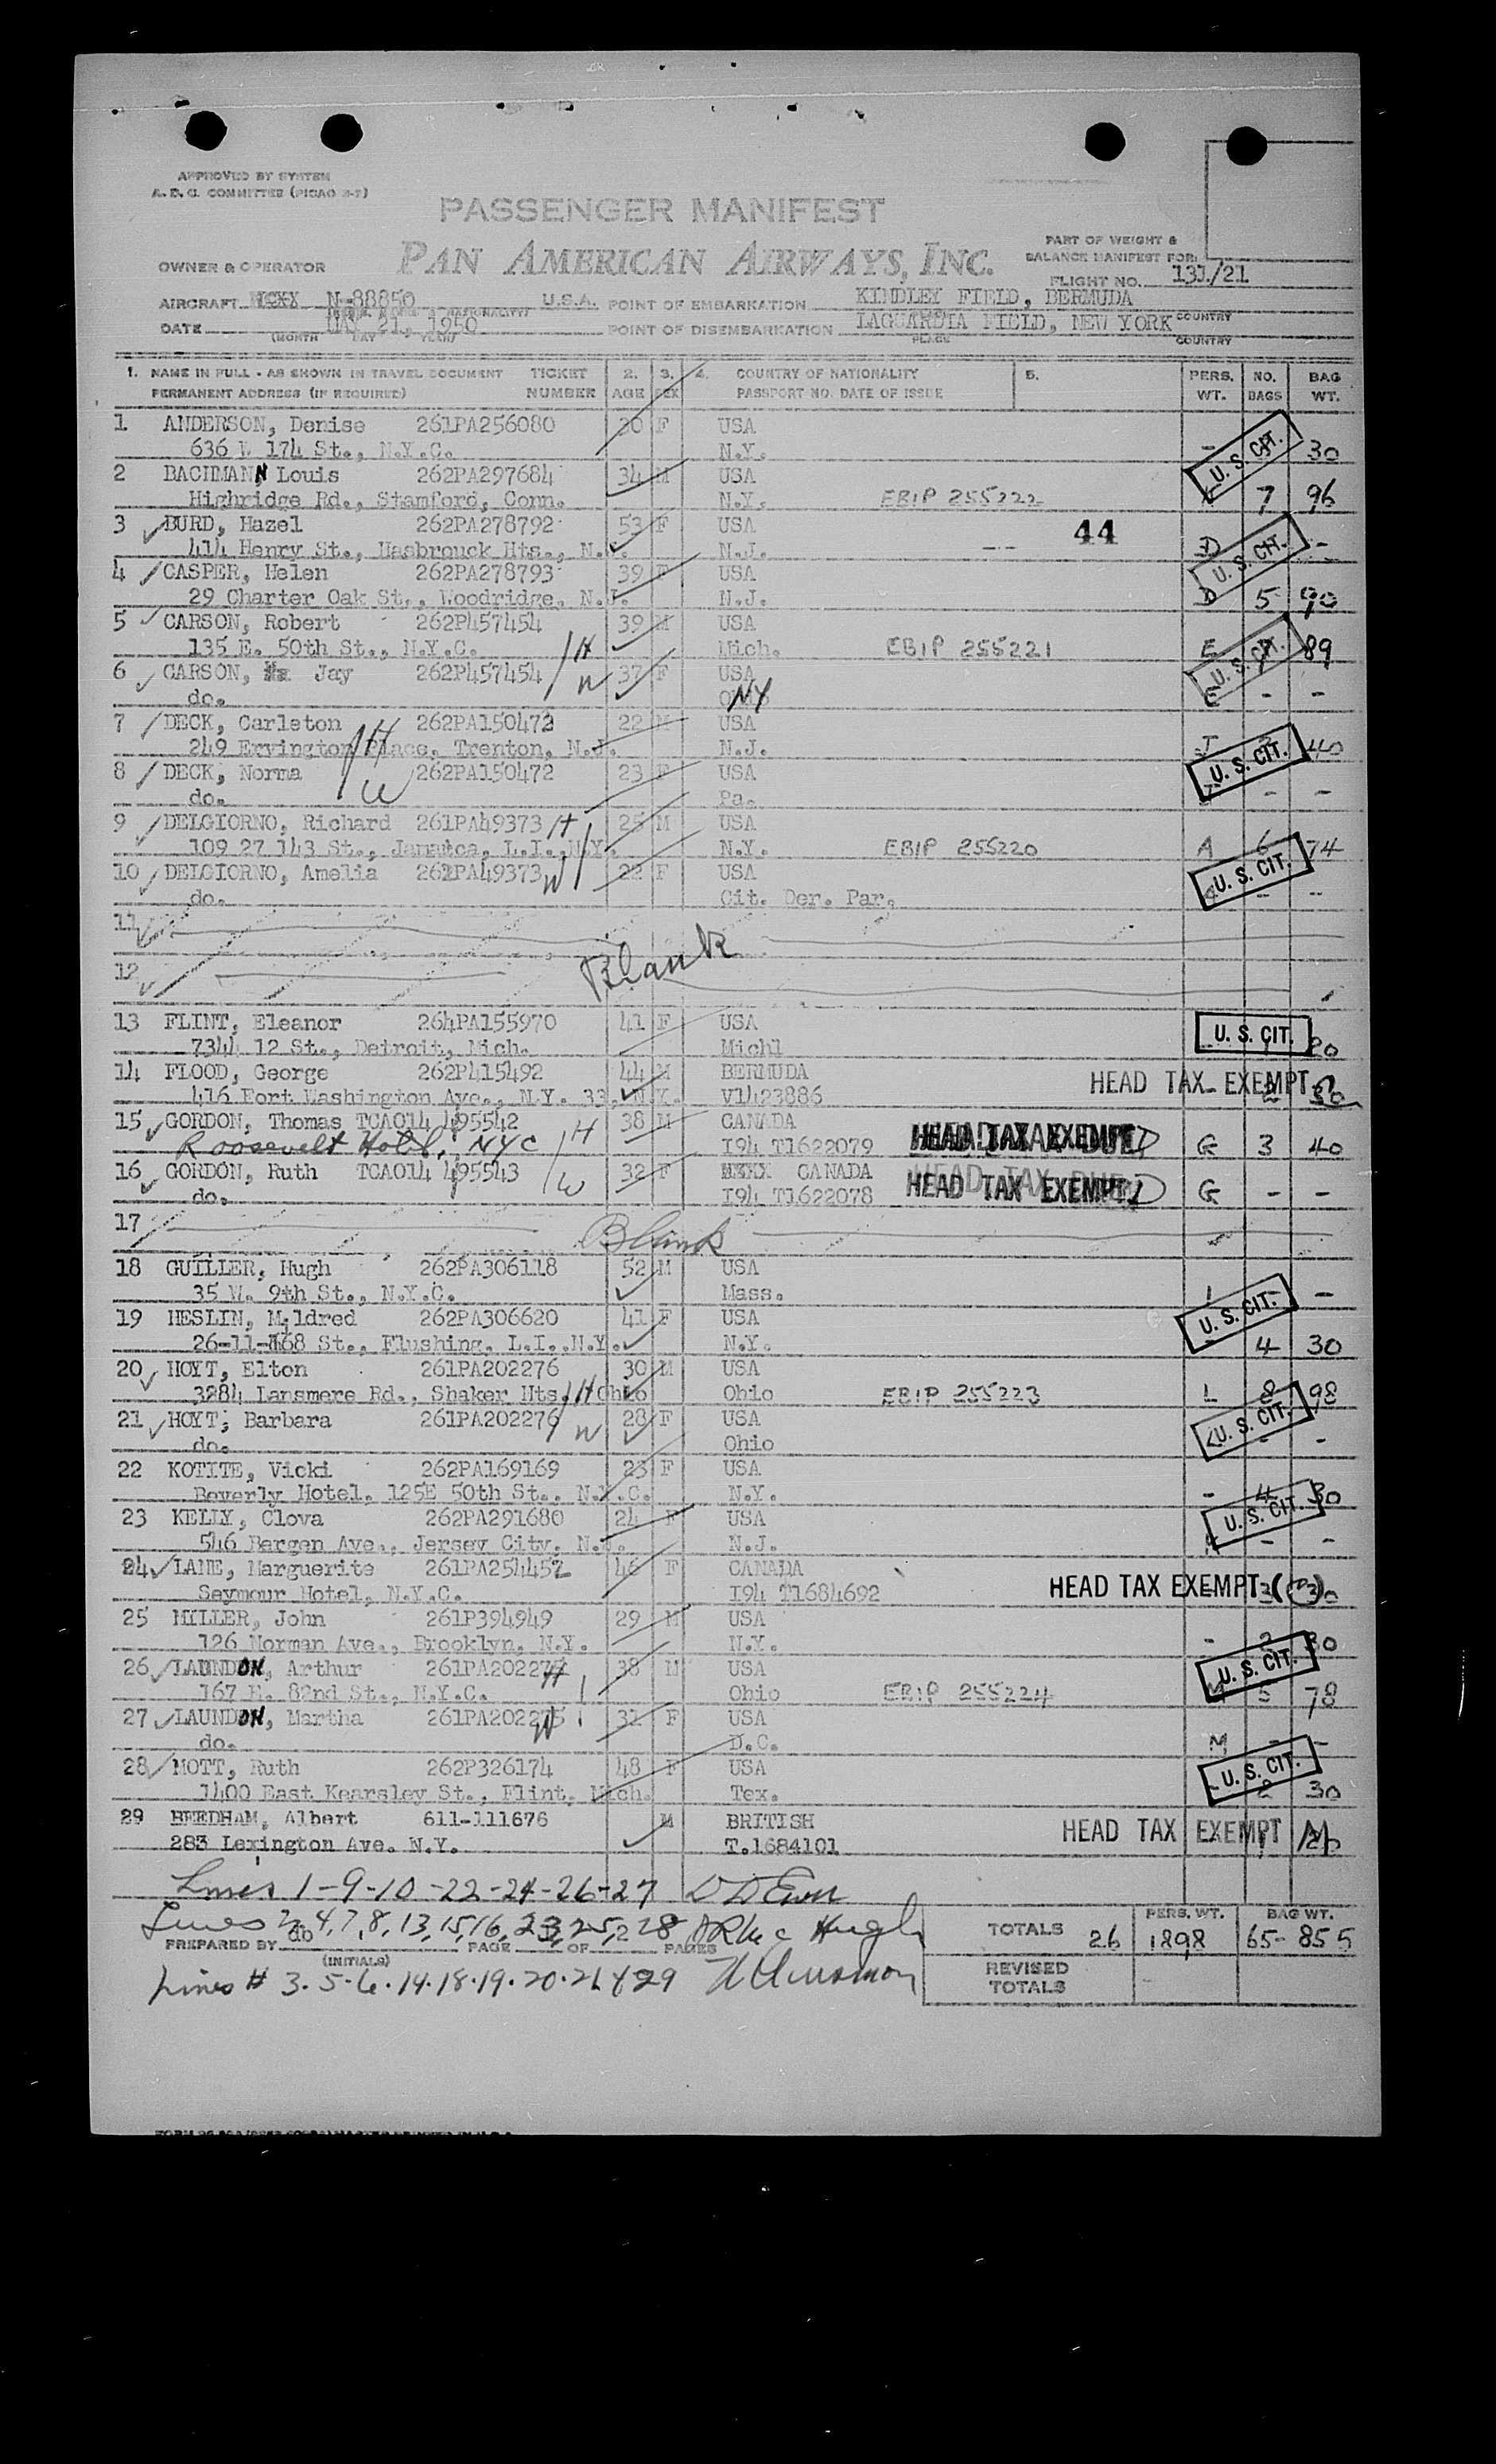 APPROVED BY SYSTEM
A. D. C. COMMITTEE (PICAO 2-7)
PASSENGER MANIFEST
PAN AMERICAN AIRWAYS, INC.
PART OF WEIGHT &
BALANCE MANIFEST FOR:
OWNER & OPERATOR
FLIGHT NO. 131/21
AIRCRAFT N-88850 U.S.A. POINT OF EMBARKATION KINDLEY FIELD, BERMUDA
DATE MAY 21, 1950 POINT OF DISEMBARKATION LAGUARDIA FIELD, NEW YORK COUNTRY
(MONTH DAY YEAR) PLACE COUNTRY
1. NAME IN FULL - AS SHOWN IN TRAVEL DOCUMENT TICKET 2. 3. 4. COUNTRY OF NATIONALITY 5. PERS. NO. BAG
PERMANENT ADDRESS (IF REQUIRED) NUMBER AGE SEX PASSPORT NO. DATE OF ISSUE WT. BAGS WT.
1 ANDERSON, Denise 261PA256080 F USA
636 W 174 St., N.Y.C. N.Y. - U. S. CIT. 30
2 BACHMANN Louis 262PA297684 34 M USA
Highridge Rd., Stamford, Conn. N.Y. EBIP 255222 7 96
3 BURD, Hazel 262PA278792 53 F USA 44
414 Henry St., Hasbrouck Hts., N.J. N.J. D U. S. CIT. -
4 CASPER, Helen 262PA278793 39 F USA
29 Charter Oak St., Woodridge, N.J. N.J. D 5 90
5 CARSON, Robert 262P457454 39 M USA
135 E. 50th St., N.Y.C. H Mich. EBIP 255221 E U. S. CIT. 89
6 CARSON, Jay 262P457454 W 37 F USA
do. NY E - -
7 DECK, Carleton 262PA150472 22 M USA
249 Ervington Place, Trenton, N.J. H N.J. J U. S. CIT. 40
8 DECK, Norma W 262PA150472 23 F USA
do. Pa. - -
9 DELGIORNO, Richard 261PA49373 H 25 M USA
109 27 143 St., Jamaica, L.I.,N.Y. N.Y. EBIP 255220 A 6 74
10 DELGIORNO, Amelia 261PA49373 W 22 F USA U. S. CIT.
do. Cit. Der. Par. - --
11
Blank
12
13 FLINT, Eleanor 264PA155970 41 F USA
7344 12 St., Detroit, Mich. Michl U. S. CIT. 1 20
14 FLOOD, George 262P415492 44 M BERMUDA HEAD TAX EXEMPT
416 Fort Washington Ave., N.Y. 33, N.Y. V1423886
15 GORDON, Thomas TCA014 495542 38 M CANADA
Roosevelt Hotel, NYC H I94 T1622079 G 3 40
16 GORDON, Ruth TCA014 495543 W 32 F CANADA
do. I94 T1622078 HEAD TAX EXEMPT G - -
17 Blank
18 GUILLER, Hugh 262PA306118 52 M USA
35 W. 9th St., N.Y.C. Mass. -
19 HESLIN, Mildred 262PA306620 41 F USA U. S. CIT.
26-11-168 St., Flushing, L.I.,N.Y. N.Y. 4 30
20 HOYT, Elton 261PA202276 30 M USA
3284 Lansmere Rd., Shaker Hts, H Ohio Ohio EBIP 255223 L 8 98
21 HOYT, Barbara 261PA202276 W 28 F USA U. S. CIT.
do. Ohio - -
22 KOTITE, Vicki 262PA169169 23 F USA
Beverly Hotel, 125E 50th St., N.Y.C. N.Y. - 4 30
23 KELLY, Clova 262PA291680 24 F USA U. S. CIT.
546 Bergen Ave., Jersey City, N.J. N.J. - -
24 LANE, Marguerite 261PA254452 46 F CANADA
Seymour Hotel, N.Y.C. I94 T1684692 HEAD TAX EXEMPT
25 MILLER, John 261P394949 29 M USA
126 Norman Ave., Brooklyn, N.Y. N.Y. - 2 30
26 LAUNDON, Arthur 261PA202275 H 38 M USA U. S. CIT.
167 E. 82nd St., N.Y.C. Ohio EBIP 255224 M 5 78
27 LAUNDON, Martha 261PA202275 W 31 F USA
do. D.C. M - -
28 MOTT, Ruth 262P326174 48 F USA U. S. CIT.
1400 East Kearsley St., Flint, Mich. Tex. - 2 30
29 BEEDHAM, Albert 611-111676 M BRITISH
283 Lexington Ave. N.Y. T.1684101 HEAD TAX EXEMPT
Lines 1-9-10-22-24-26-27
Lines 2, 4, 7, 8, 13, 15, 16, 23, 25, 28
PREPARED BY db PAGE 1 OF 2 PAGES
(INITIALS)
Lines # 3.5-6.14.18.19.20.21 & 29
PERS. WT. BAG WT.
TOTALS 26 1898 65- 855
REVISED
TOTALS